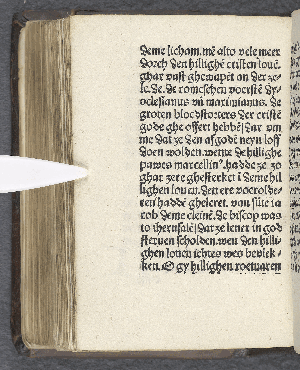 deme licham. mē alto vele meer
dorch den hillighē cristen louē.
ghar vast ghewapēt an der ze-
le. de. de romeschen voerstē dy-
oclesianus vn̄ maximianus. de
groten blodstorters der cristē
gode ghe offert hebbē/ dar vm
me dat ze den afgodē neyn loff
doen wolden. wente de hillighe
pawes marcellin⁹. hadde ze zo
ghar zere ghesterket ī deme hil
lighen louen. den ere voerolde-
ren haddē gheleret. van sūte ia
cob deme cleinē. de biscop was
to iherusalē/ dat ze leuer in god
steruen scholden. wen den hilli-
ghen louen ichtes wes bevlek-
ken. O gy hillighen